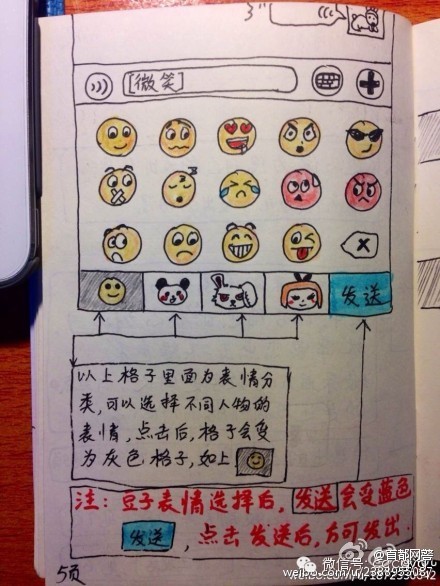 [微笑]
发送
以上格子里面为表情分
类,可以选择不同人物的
表情,点击后,格子会变
为灰色格子,如上
注:豆子表情选择后,发送会变蓝色
发送,点击发送后,方可发出.
5页
微信号:@首都网警